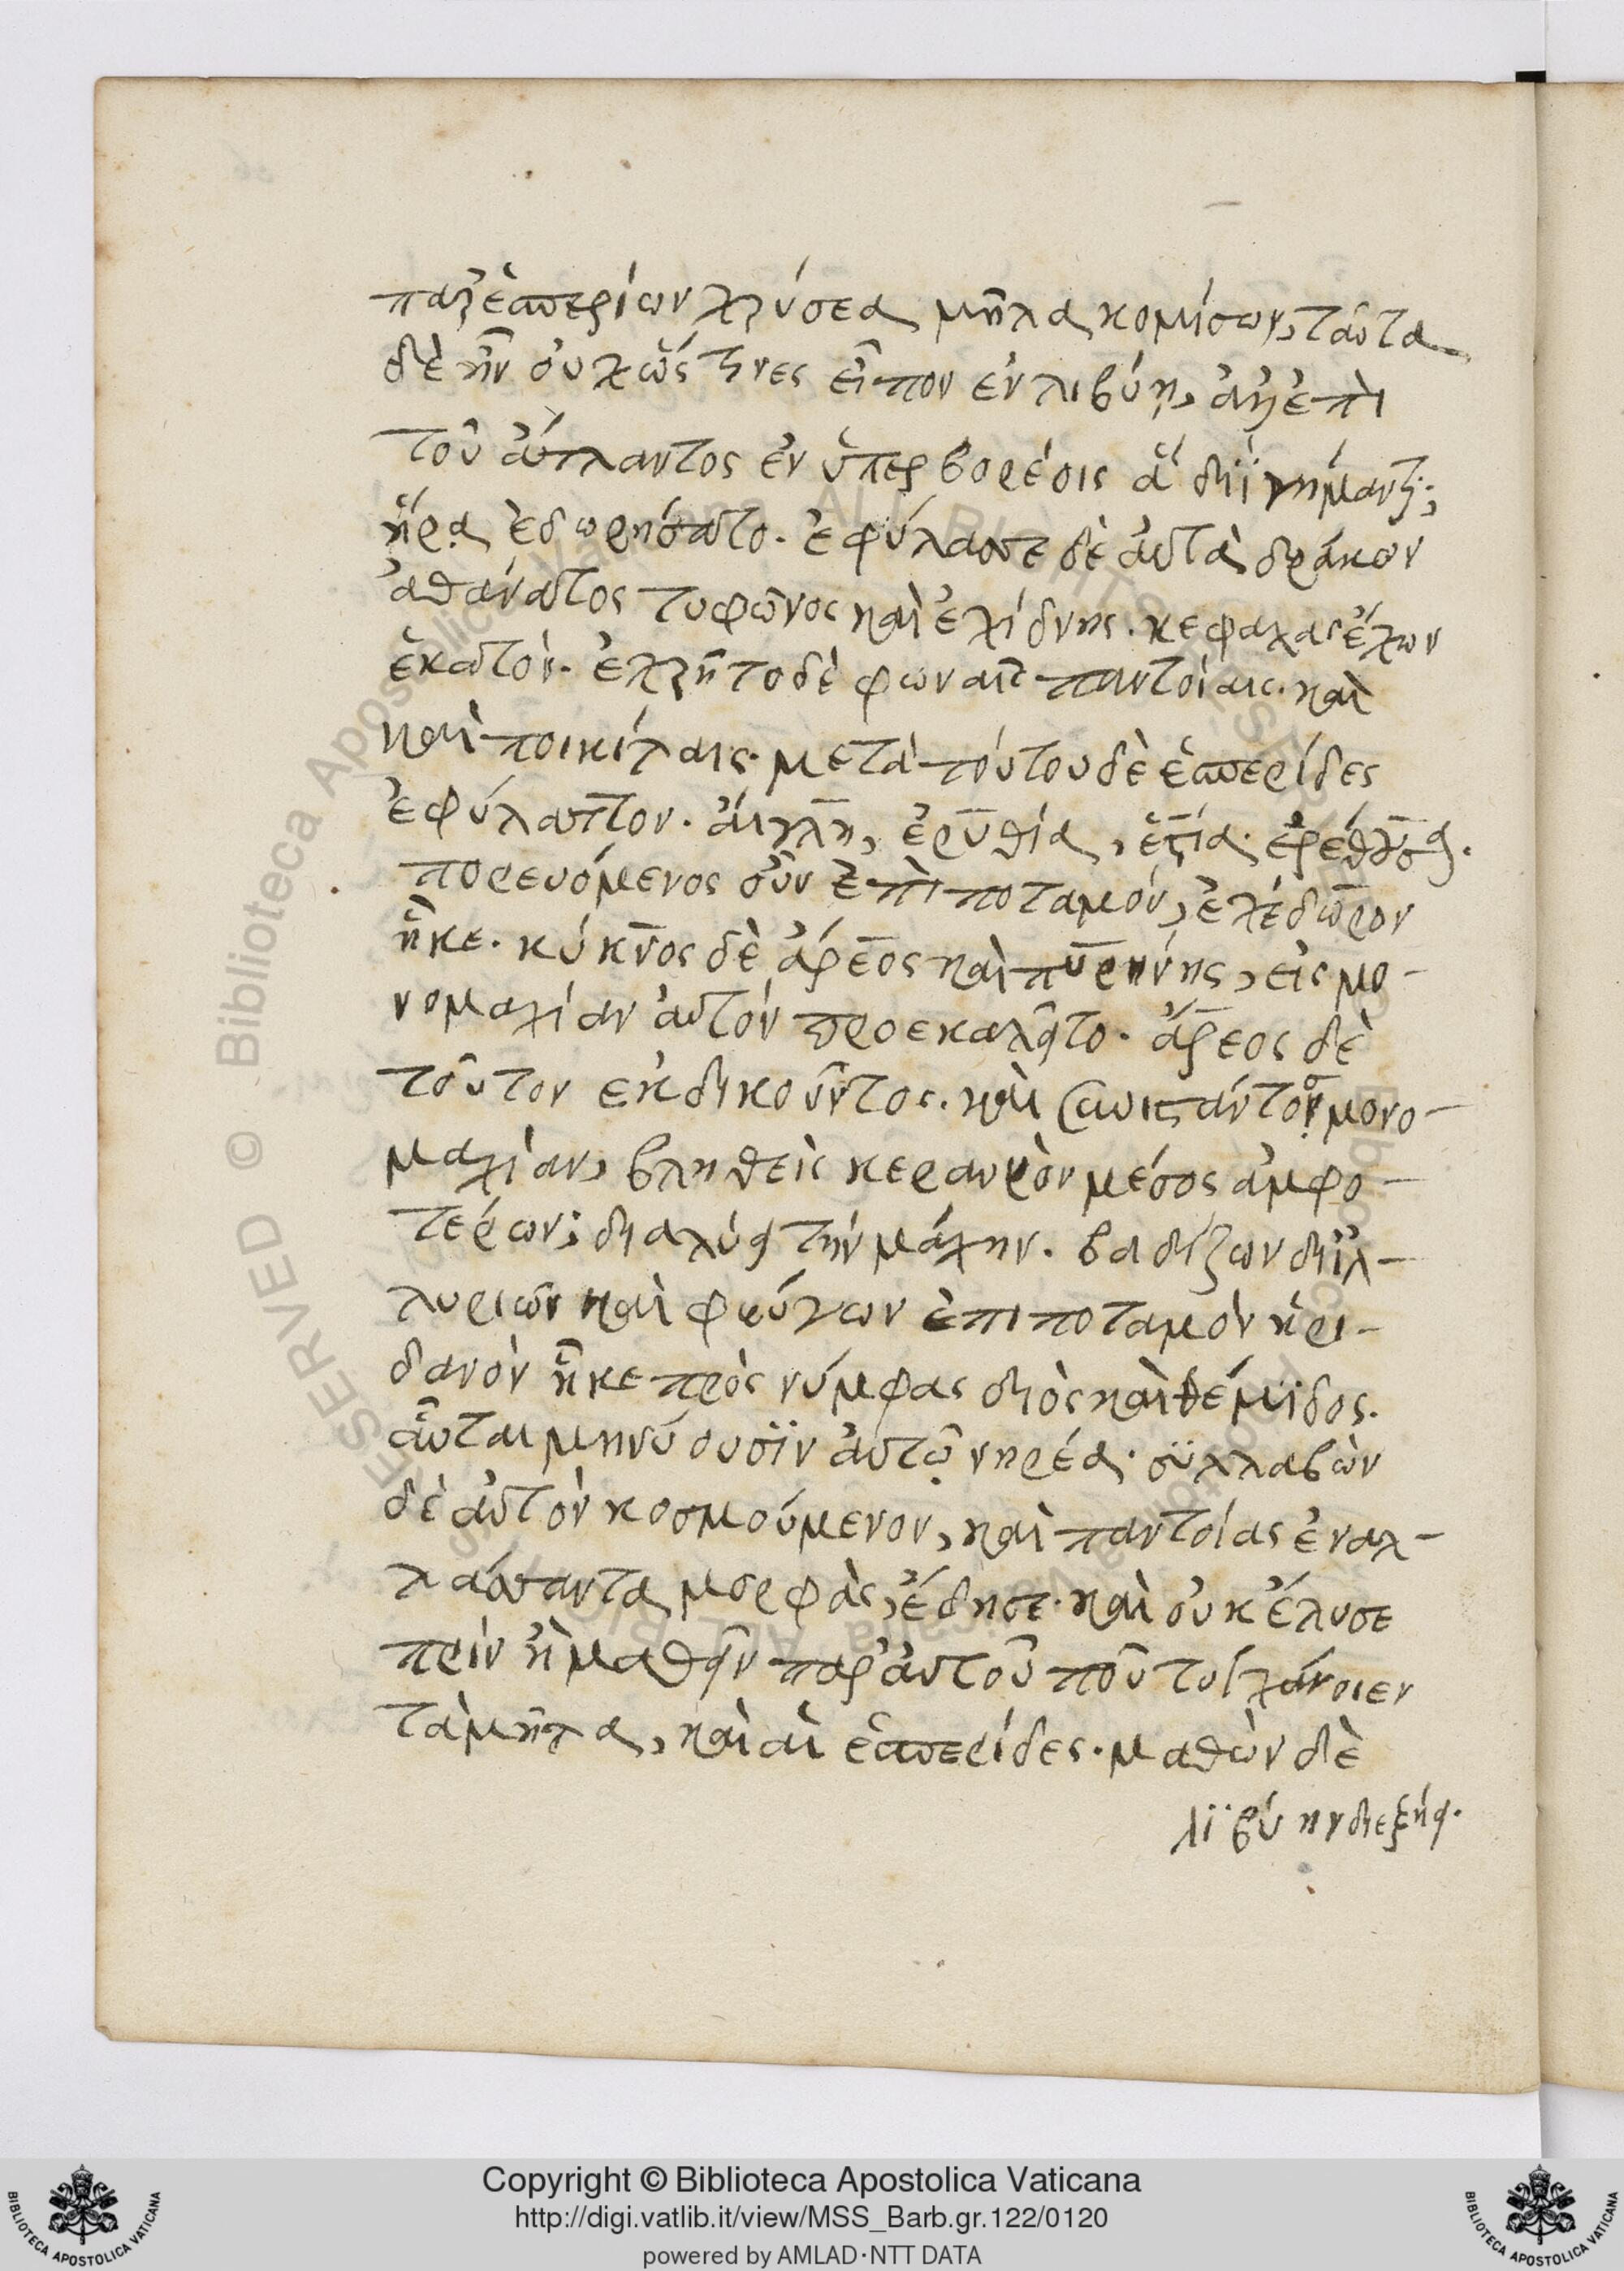 παρ' ἑσπερίων χρύσεα μῆλα κομίσων, ταῦτα
δὲ ἦν οὐχ ὥς τινες εἶπον ἐν λιβύῃ, ἀλλ' ἐπὶ
τοῦ ἄτλαντος ἐν ὑπερβορέοις ἃ διῒ γήμαντι;
ἥρα ἐδωρήσατο. ἐφύλασσε δὲ αὐτὰ δράκων
ἀθάνατος τυφῶνος καὶ ἐχίδνης. κεφαλὰς ἔχων
ἑκατόν. ἐχρῆτο δὲ φωναῖς παντοίαις. καὶ
καὶ ποικίλαις. μετὰ τούτου δὲ ἑσπερίδες
ἐφύλαττον. ἀίγλη, ἐρυθία, ἑστία. ἐρέθουσα.
πορευόμενος οὖν ἐπὶ ποταμόν, ἐχέδωρον
ἧκε. κύκνος δὲ ἄρεος καὶ πυρήνης, εἰς μο-
νομαχίαν αὐτόν προεκαλεῖτο. ἄρεος δὲ
τοῦτον ἐκδικοῦντος. καὶ συνιστάντος μονο-
μαχίαν, βληθεὶς κεραυνὸν μέσος ἀμφο-
τέρων; διαλύει τὴν μάχην. βαδίζων δι' ἰλ-
λυριῶν καὶ φεύγων ἐπὶ ποταμὸν ἠρι-
δανὸν ἧκε πρὸς νύμφας διὸς καὶ θέμϊδος.
αὗται μηνύουσϊν ἀυτῷ νηρέα. σϋλλαβὼν
δὲ αὐτὸν κοσμούμενον, καὶ παντοίας ἐναλ-
λάσσαντα μορφὰς, ἔδησε. καὶ οὐκ ἔλυσε
πρὶν ἢ μαθεῖν παρ' ἀυτοῦ ποῦ τυγχάνοιεν
τὰ μῆλα, καὶ αἱ ἑσπερίδες. μαθὼν δὲ
λϊβύην διεξήει.
Copyright © Biblioteca Apostolica Vaticana
http://digi.vatlib.it/view/MSS_Barb.gr.122/0120
powered by AMLAD·NTT DATA